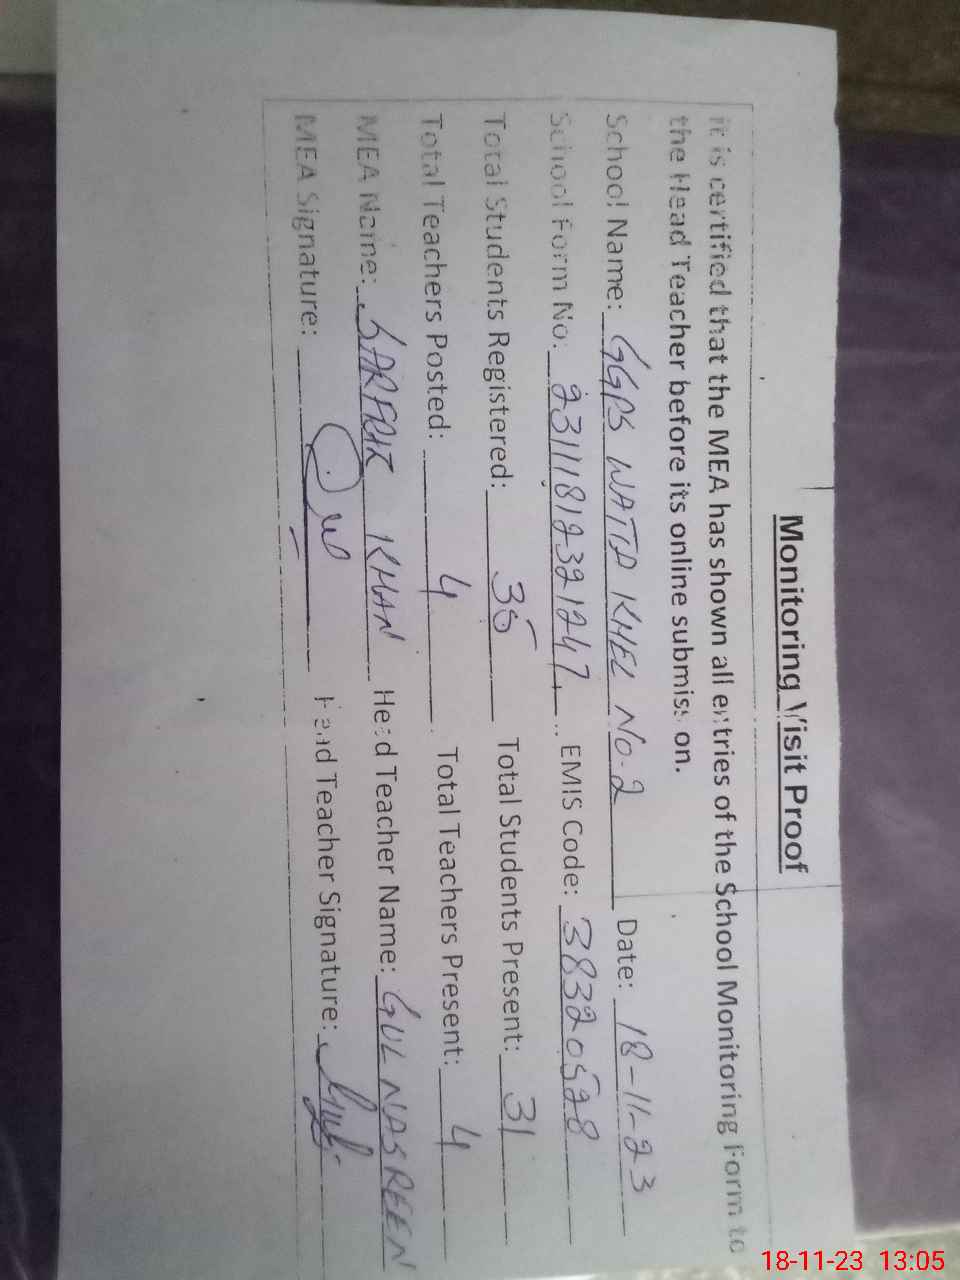 Monitoring Visit Proof
it is certified that the MEA has shown all entries of the School Monitoring Form to
the Head Teacher before its online submission.
School Name: GGPS WATTA KHEL NO.2 Date: 18-11-23
School Form No: 23111812321247 EMIS Code: 38320528
Total Students Registered: 35 Total Students Present: 31
Total Teachers Posted: 4 Total Teachers Present: 4
MEA Name: KHAN Head Teacher Name: GUL NASREEN
MEA Signature: Head Teacher Signature:
18-11-23 13:05